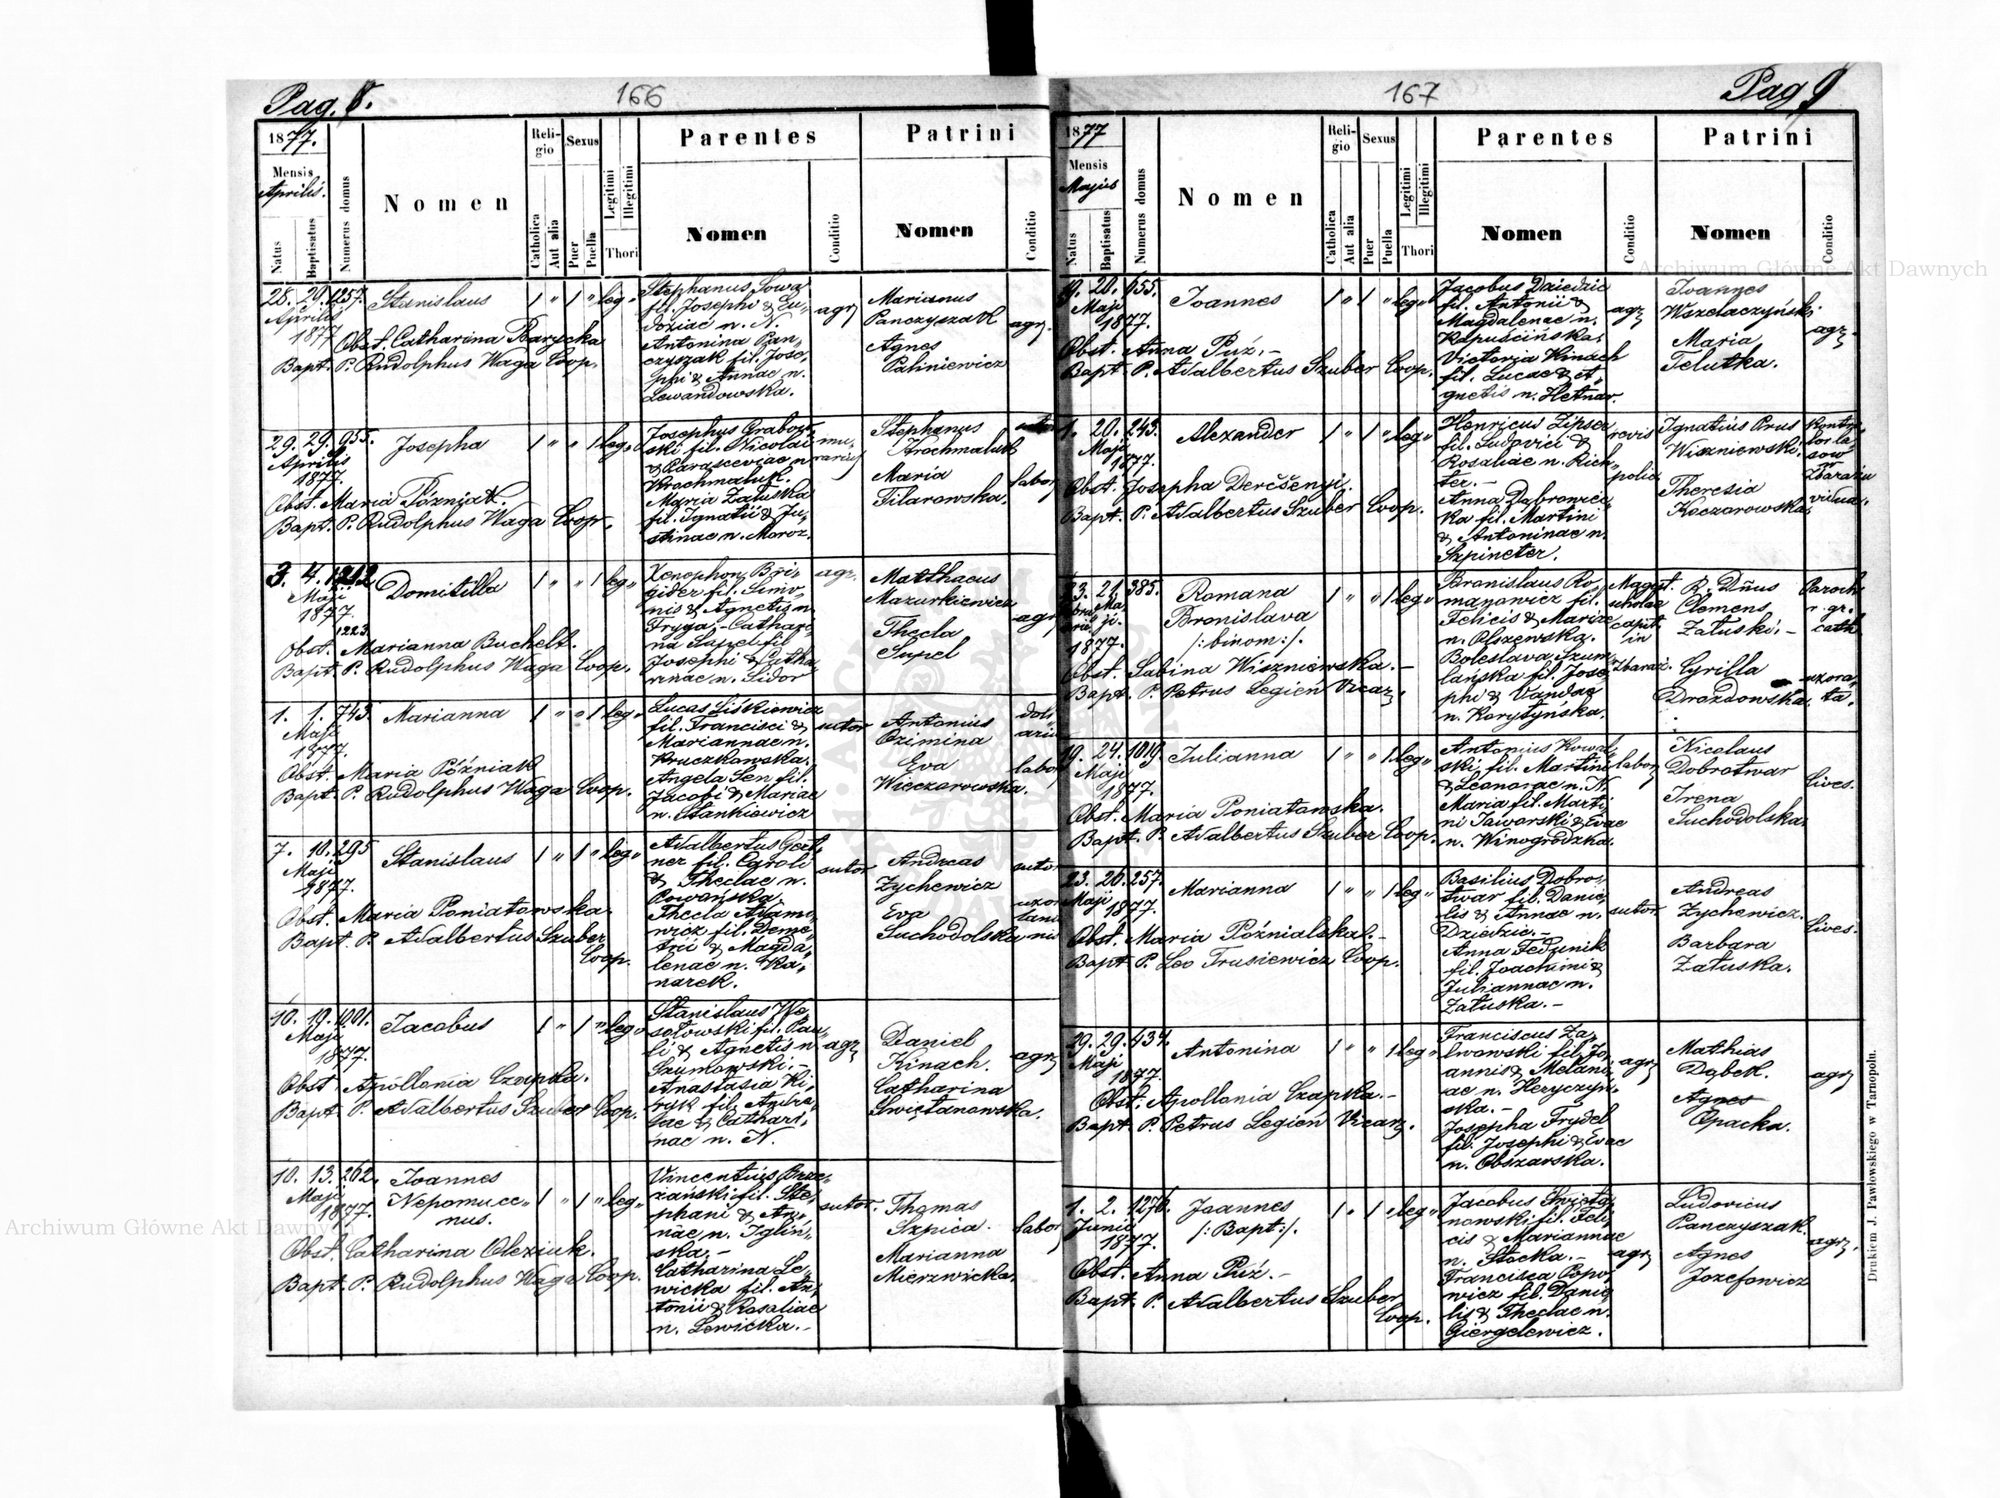 Pag. 8.
166
1877.
Mensis
Aprilis.
Natus
Baptisatus
Numerus domus
Nomen
Religio
Catholica
Aut alia
Sexus
Puer
Puella
Legitimi
Illegitimi
Thori
Parentes
Nomen
Conditio
Patrini
Nomen
Conditio
28. 29. 1257. Stanislaus 1 " 1 " leg.
Aprilis
1877
Obst. Catharina Barycka
Bapt. P. Rudolphus Waga Coop.
Stephanus Sowa
fil. Josephi & Eu-
doxiae n. N.
Antonina Pan-
czyszak fil. Jose-
phi & Annae n.
Lewandowska.
agr.
Marianus
Panczyszak
Agnes
Paliniewicz
agr.
29. 29. 955. Josepha 1 " " 1 leg.
Aprilis
1877.
Obst. Maria Póżniak.
Bapt. P. Rudolphus Waga Coop.
Josephus Grabow-
ski fil. Nicolai
& Parasceviae n.
Krochmaluk.
Maria Załuska
fil. Ignatii & Ju-
stinae n. Moroz.
mu-
rarius
Stephanus
Krochmaluk
Maria
Filarowska.
labor.
3. 4. 1212 Domitilla 1 " " 1 leg.
Maji
1877.
1223.
Obst. Marianna Buchelt.
Bapt. P. Rudolphus Waga Coop.
Xenophon Bry-
gider fil. Simo-
nis & Agnetis n.
Fryga, - Cathari-
na Supel fil.
Josephi & Catha-
rinae n. Sidor
agr.
Matthaeus
Mazurkiewicz
Thecla
Supel
agr.
1. 1. 743. Marianna 1 " " 1 leg.
Maji
1877.
Obst. Maria Póżniak
Bapt. P. Rudolphus Waga Coop.
Lucas Liśkiewicz
fil. Francisci &
Mariannae n.
Kruczkowska.
Angela Sen fil.
Jacobi & Mariae
n. Stankiewicz
sutor
Antonius
Ozimina
Eva
Wieczorowska.
doli-
arius
labor.
7. 10. 295 Stanislaus 1 " 1 " leg.
Maji
1877.
Obst. Maria Poniatowska.
Bapt. P. Adalbertus Szuber
Coop.
Adalbertus Gert-
ner fil. Caroli
& Theclae n.
Rowańska.
Thecla Adamo-
wicz fil. Deme-
trii & Magda-
lenae n. Ka-
narek.
sutor
Andreas
Zychewicz
Eva
Suchodolska
sutor
10. 19. 1001. Jacobus 1 " 1 " leg.
Maji
1877.
Obst. Apollonia Czapka.
Bapt. P. Adalbertus Szuber Coop.
Stanislaus We-
sołowski fil. Pau-
li & Agnetis n.
Szumowski. -
Anastasia Ki-
ryk fil. Andre-
ae & Cathari-
nae n. N.
agr.
Daniel
Kinach.
Catharina
Swiętanowska.
agr.
10. 13. 262. Joannes 1 " 1 " leg.
Maji
1877.
Nepomuce-
nus.
Obst. Catharina Oleziuk.
Bapt. P. Rudolphus Waga Coop.
Vincentius Brze-
ziański fil. Ste-
phani & An-
nae n. Iglin-
ska. -
Catharina Le-
wicka fil. An-
tonii & Rosaliae
n. Lewicka. -
sutor.
Thomas
Szpica.
Marianna
Mierzwicka.
labor
Pag. 9
167
1877
Mensis
Majus
Natus
Baptisatus
Numerus domus
Nomen
Religio
Catholica
Aut alia
Sexus
Puer
Puella
Legitimi
Illegitimi
Thori
Parentes
Nomen
Conditio
Patrini
Nomen
Conditio
19. 20. 655. Joannes 1 " 1 " leg.
Maji
1877.
Obst. Anna Puź. -
Bapt. P. Adalbertus Szuber Coop.
Jacobus Dziedzic
fil. Antonii &
Magdalenae n.
Kapuścińska.
Victoria Kinach
fil. Lucae & A-
gnetis n. Hetnar.
agr.
Joannes
Wszelaczyński
Maria
Telutka.
agr.
1. 20. 243. Alexander 1 " 1 " leg.
Maji
1877.
Obst. Josepha Derčšenyi.
Bapt. P. Adalbertus Szuber Coop.
Henricus Zipser
fil. Ludovici &
Rosaliae n. Rich-
ter. -
Anna Dąbrowiec-
ka fil. Martini
& Antoninae n.
Szpineter.
Ignatius Prus
Wiszniewski.
Theresia
Koczorowska.
vidua.
23. 21. 385. Romana 1 " " 1 leg.
1877.
Bronislava
/: binom :/.
Obst. Sabina Wiszniewska. -
Bapt. P. Petrus Legień Vicar.
Bronislaus Ro-
manowicz fil.
Felicis & Mariae
n. Olszewska.
Boleslava Szum-
lańska fil. Jose-
phi & Vandae
n. Korytyńska.
Magist.
scholae
capit.
in
Zbaraż.
R. Dnus
Clemens
Załuski, -
Cyrilla
Drozdowska.
Paroch.
r. gr.
cath.
uxora-
ta.
19. 24. 1019. Julianna 1 " " 1 leg.
Maji
1877.
Obst. Maria Poniatowska.
Bapt. P. Adalbertus Szuber Coop.
Antonius Kowal-
ski fil. Martini
& Leonorae n. N.
Maria fil. Marti-
ni Jaworski & Evae
n. Winogrodzka.
labor.
Nicolaus
Dobrotwar
Irena
Suchodolska.
Cives.
23. 26. 257. Marianna 1 " " 1 leg.
Maji
1877.
Obst. Maria Póżnialska. -
Bapt. P. Leo Trusiewicz Coop.
Basilius Dobro-
twar fil. Danie-
lis & Annae n.
Dziedzic. -
Anna Fedynik
fil. Joachimi &
Juliannae n.
Załuska. -
sutor.
Andreas
Zychewicz.
Barbara
Załuska.
Cives.
29. 29. 634. Antonina 1 " " 1 leg.
Maji
1877.
Obst. Apollonia Czapka. -
Bapt. P. Petrus Legień Vicar.
Franciscus Za-
lwowski fil. Jo-
annis & Melani-
ae n. Heryczyń-
ska. -
Josepha Frydel
fil. Josephi & Evae
n. Obszarska.
agr.
Mathias
Dąbek.
Agnes
Opacka.
agr.
1. 2. 1276. Joannes 1 " 1 " leg.
Junii
1877.
/: Bapt :/.
Obst. Anna Puź. -
Bapt. P. Adalbertus Szuber
Coop.
Jacobus Swięta-
nowski fil. Feli-
cis & Mariannae
n. Stocka. -
Francisca Popo-
wicz fil. Danie-
lis & Theclae n.
Giergelewicz.
agr.
Ludovicus
Panczyszak.
Agnes
Jozefowicz
agr.
Drukiem J. Pawłowskiego w Tarnopolu.
Archiwum Główne Akt Dawnych
Archiwum Główne Akt Dawnych